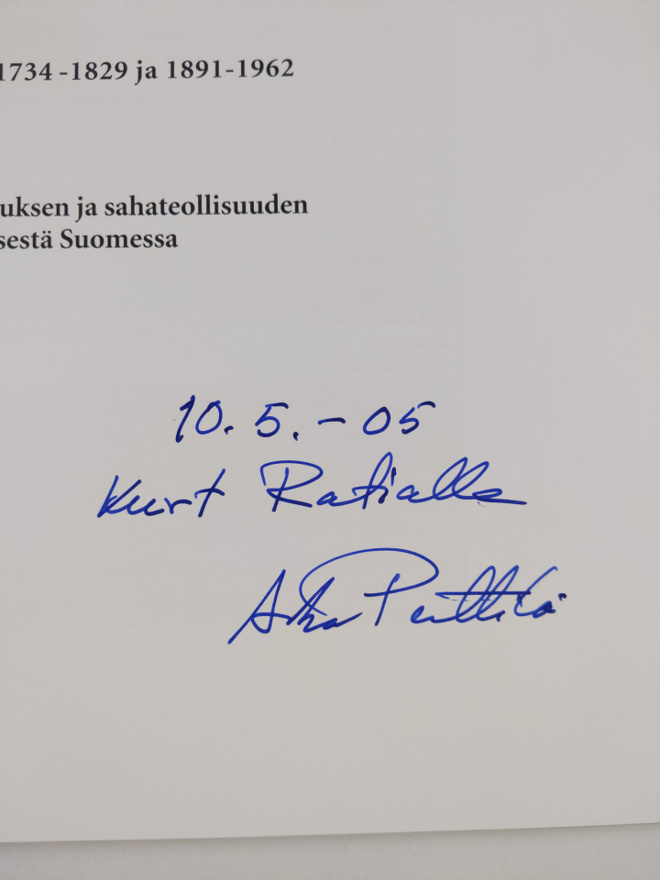 1734 -1829 ja 1891-1962
uksen ja sahateollisuuden
sestä Suomessa
10. 5. - 05
Kurt Ratialle
Penttilä